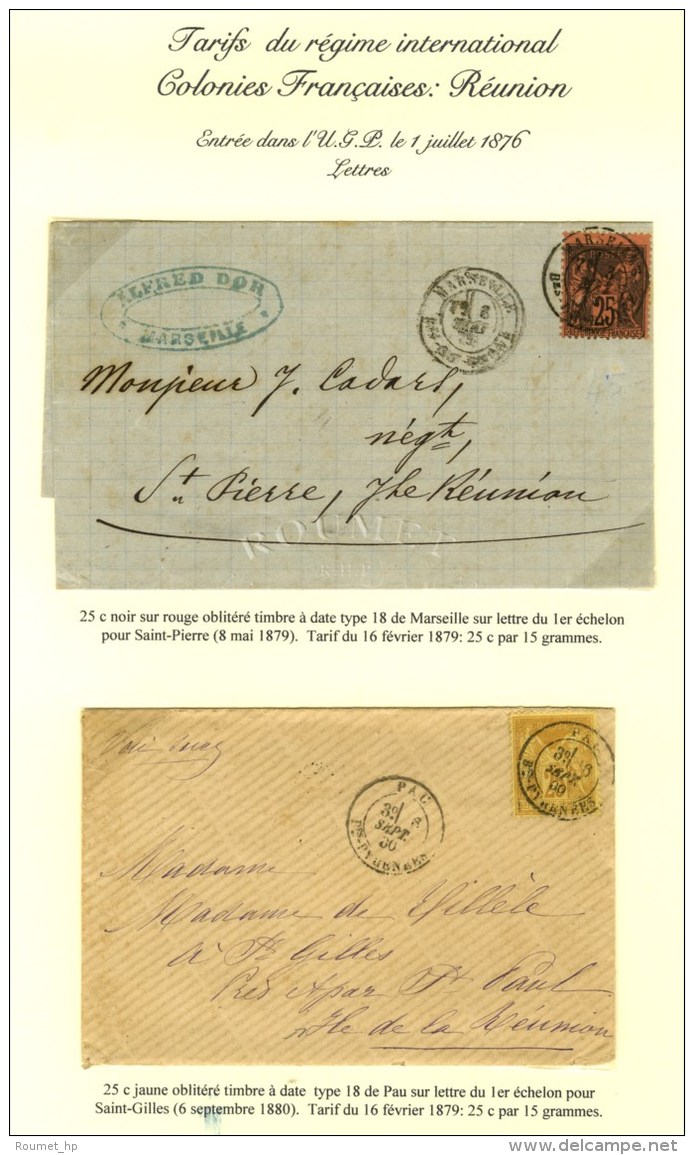 Tarifs du régime international
Colonies Françaises: Réunion
Entrée dans l'U.G.P. le 1 juillet 1876
Lettres
ALFRED DOR
MARSEILLE
MARSEILLE
8
MAI
79
BES-DU-RHONE
MARSEILLE
25
Monsieur J. Cadars,
négt,
St Pierre, Ile Réunion
ROUMET
25 c noir sur rouge oblitéré timbre à date type 18 de Marseille sur lettre du 1er échelon
pour Saint-Pierre (8 mai 1879). Tarif du 16 février 1879: 25 c par 15 grammes.
PAU
6
SEPT.
80
BES-PYRENEES
PAU
6
SEPT.
80
BSES-PYRENEES
Madame
Madame de Villèle
à St Gilles
Près St Paul
Ile de la Réunion
25 c jaune oblitéré timbre à date type 18 de Pau sur lettre du 1er échelon pour
Saint-Gilles (6 septembre 1880). Tarif du 16 février 1879: 25 c par 15 grammes.
Roumet_hp
www.delcampe.net